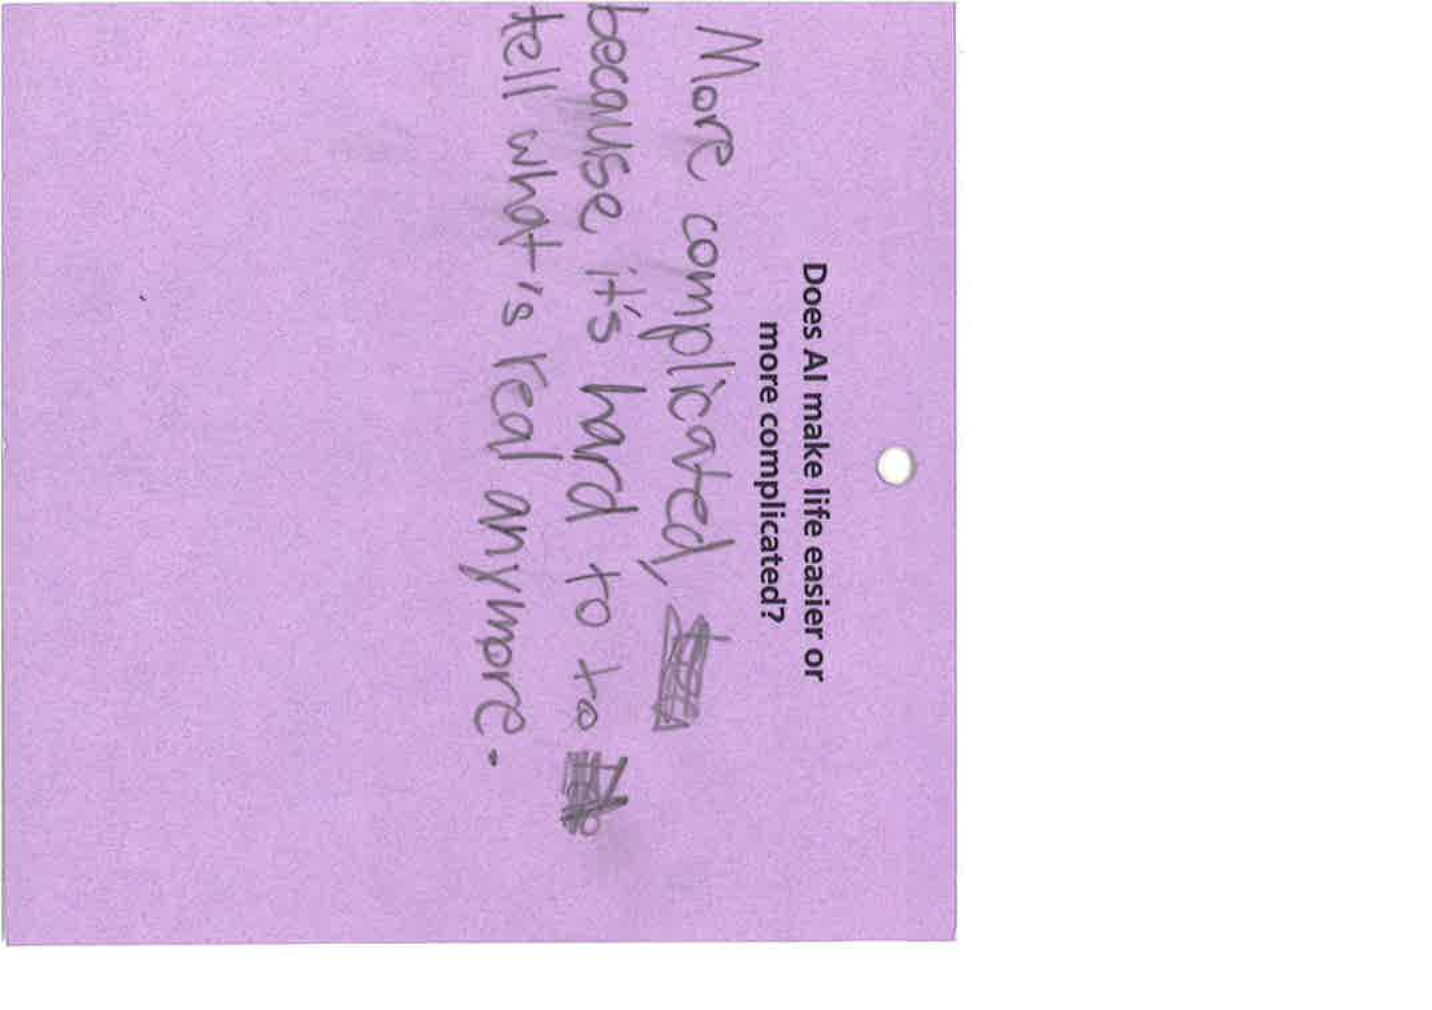 Does AI make life easier or
more complicated?
More complicated,
because it's hard to to
tell what's real anymore.